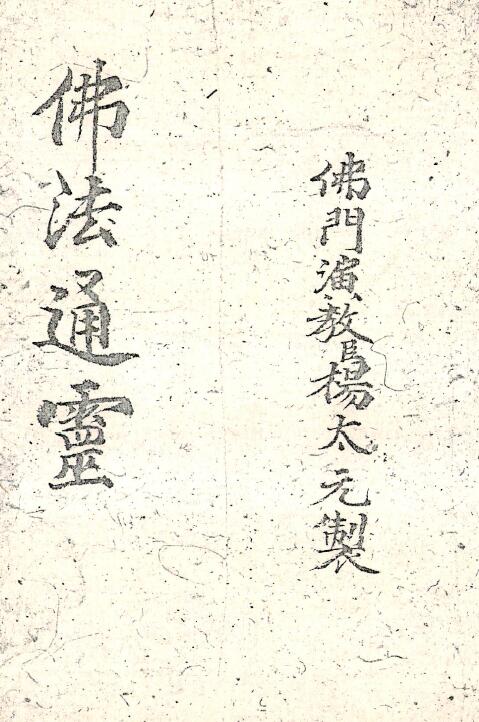 佛門演教員楊太元製
佛法通靈